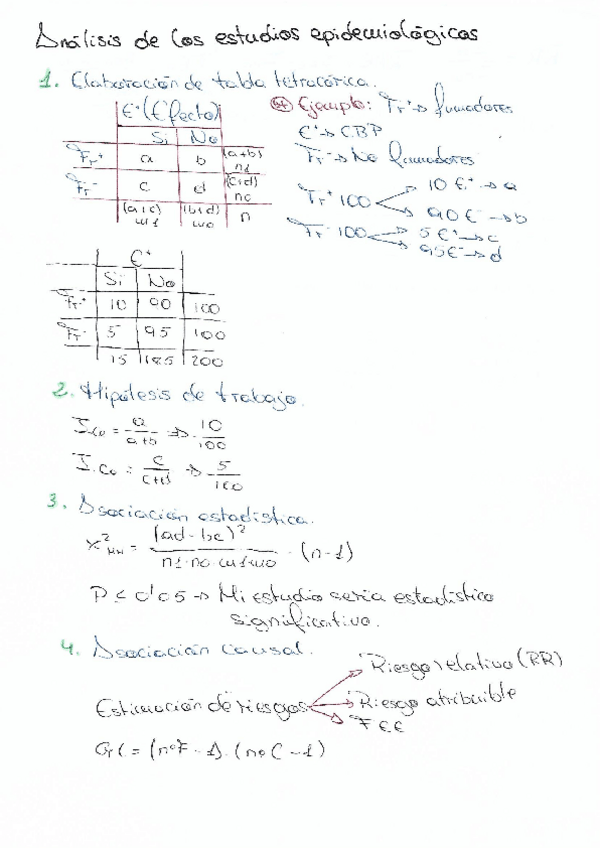 Análisis de los estudios epidemiológicos
1. Elaboración de tabla tetracórica.
E⁺(Efecto)
Si No
Fr⁺ a b (a+b) n1
Fr⁻ c d (c+d) no
(a+c) m1 (b+d) mo n
Ejemplo: Fr⁺→ fumadores
E⁺→ CBP
Fr⁻→ No fumadores
Fr⁺ 100 10 E⁺→ a
90 E⁻→ b
Fr⁻ 100 5 E⁺→ c
95 E⁻→ d
E⁺
Si No
Fr⁺ 10 90 100
Fr⁻ 5 95 100
15 185 200
2. Hipótesis de trabajo.
I.Co = a/a+b ⇒ 10/100
I.Co = c/c+d ⇒ 5/100
3. Asociación estadística.
X²MH = (ad-bc)²/n1·no·m1·mo · (n-1)
P ≤ 0'05 → Mi estudio seria estadístico
significativo.
4. Asociación causal.
Estimación de riesgos
Riesgo relativo (RR)
Riesgo atribuible
FEE
GrL = (nºF - 1). (nºC - 1)